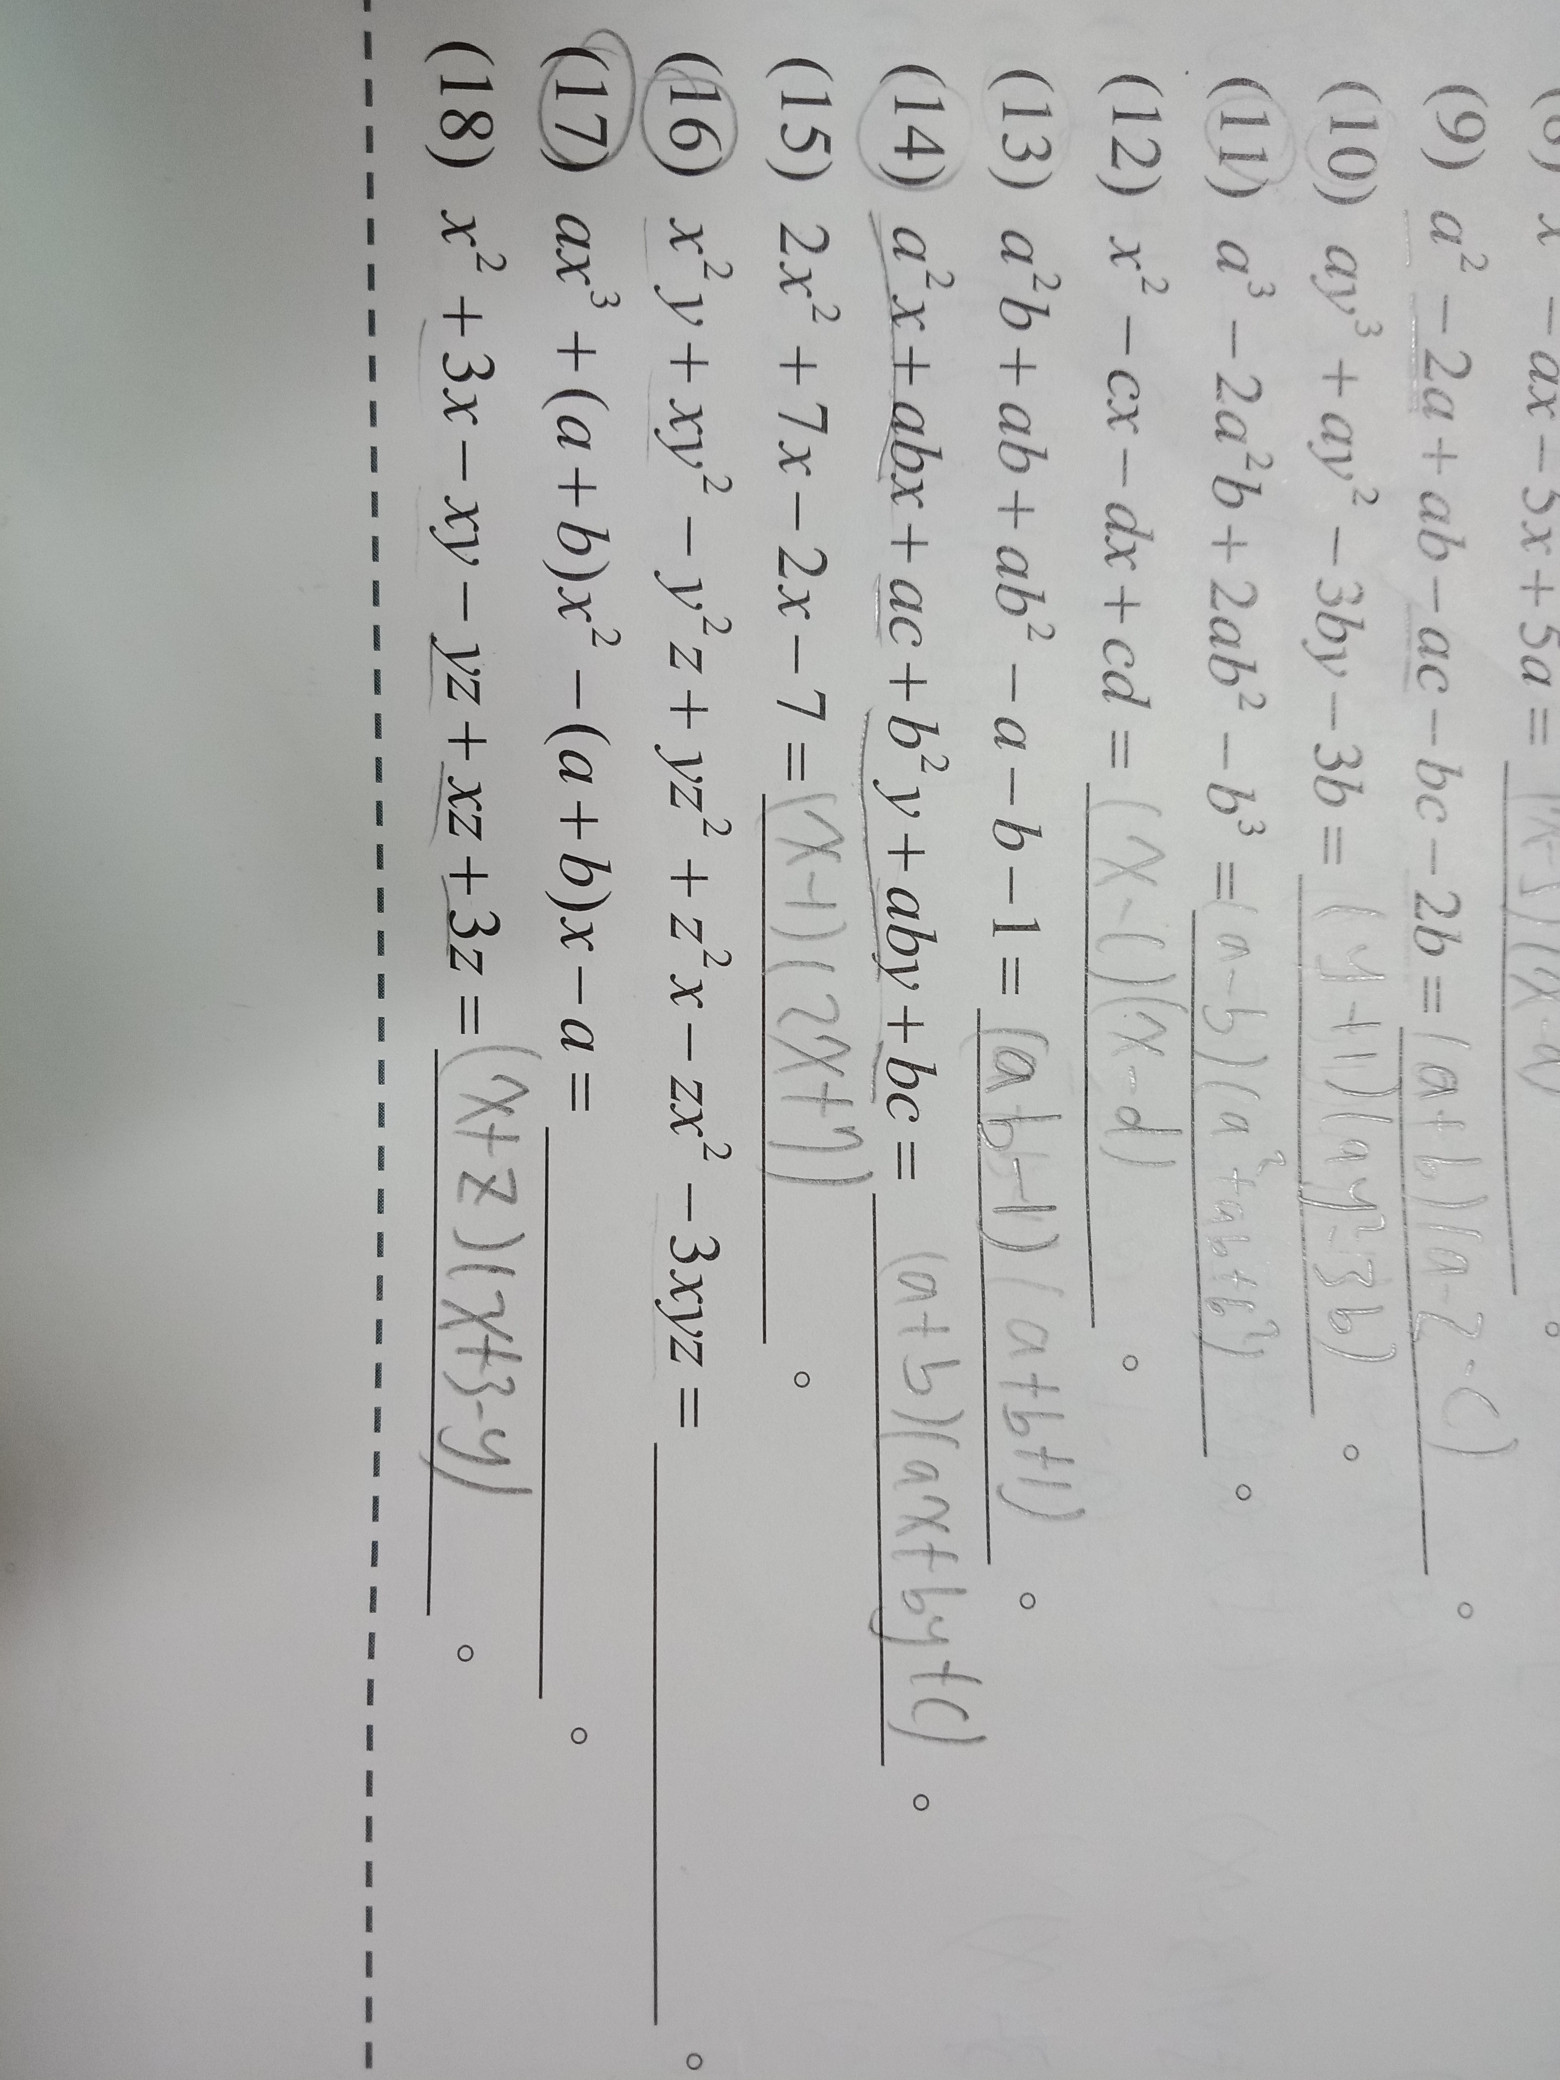 x² - ax - 5x + 5a =
(9) a² - 2a + ab - ac - bc - 2b = (a+b)(a-2-c) 。
(10) ay³ + ay² - 3by - 3b = (y+1)(ay²-3b) 。
(11) a³ - 2a²b + 2ab² - b³ = (a-b)(a²+ab+b²) 。
(12) x² - cx - dx + cd = (x-c)(x-d) 。
(13) a²b + ab + ab² - a - b - 1 = (ab-1)(a+b+1) 。
(14) a²x + abx + ac + b²y + aby + bc = (a+b)(ax+by+c) 。
(15) 2x² + 7x - 2x - 7 = (x-1)(2x+7) 。
(16) x²y + xy² - y²z + yz² + z²x - zx² - 3xyz = 。
(17) ax³ + (a+b)x² - (a+b)x - a = 。
(18) x² + 3x - xy - yz + xz + 3z = (x+z)(x+3-y) 。